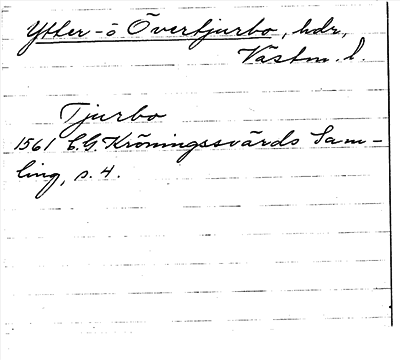 Ytter- o Övertjurbo, hdr,
Västm. l.
Tjurbo
1561 C.G. Kröningssvärds Sam-
ling, s. 4.